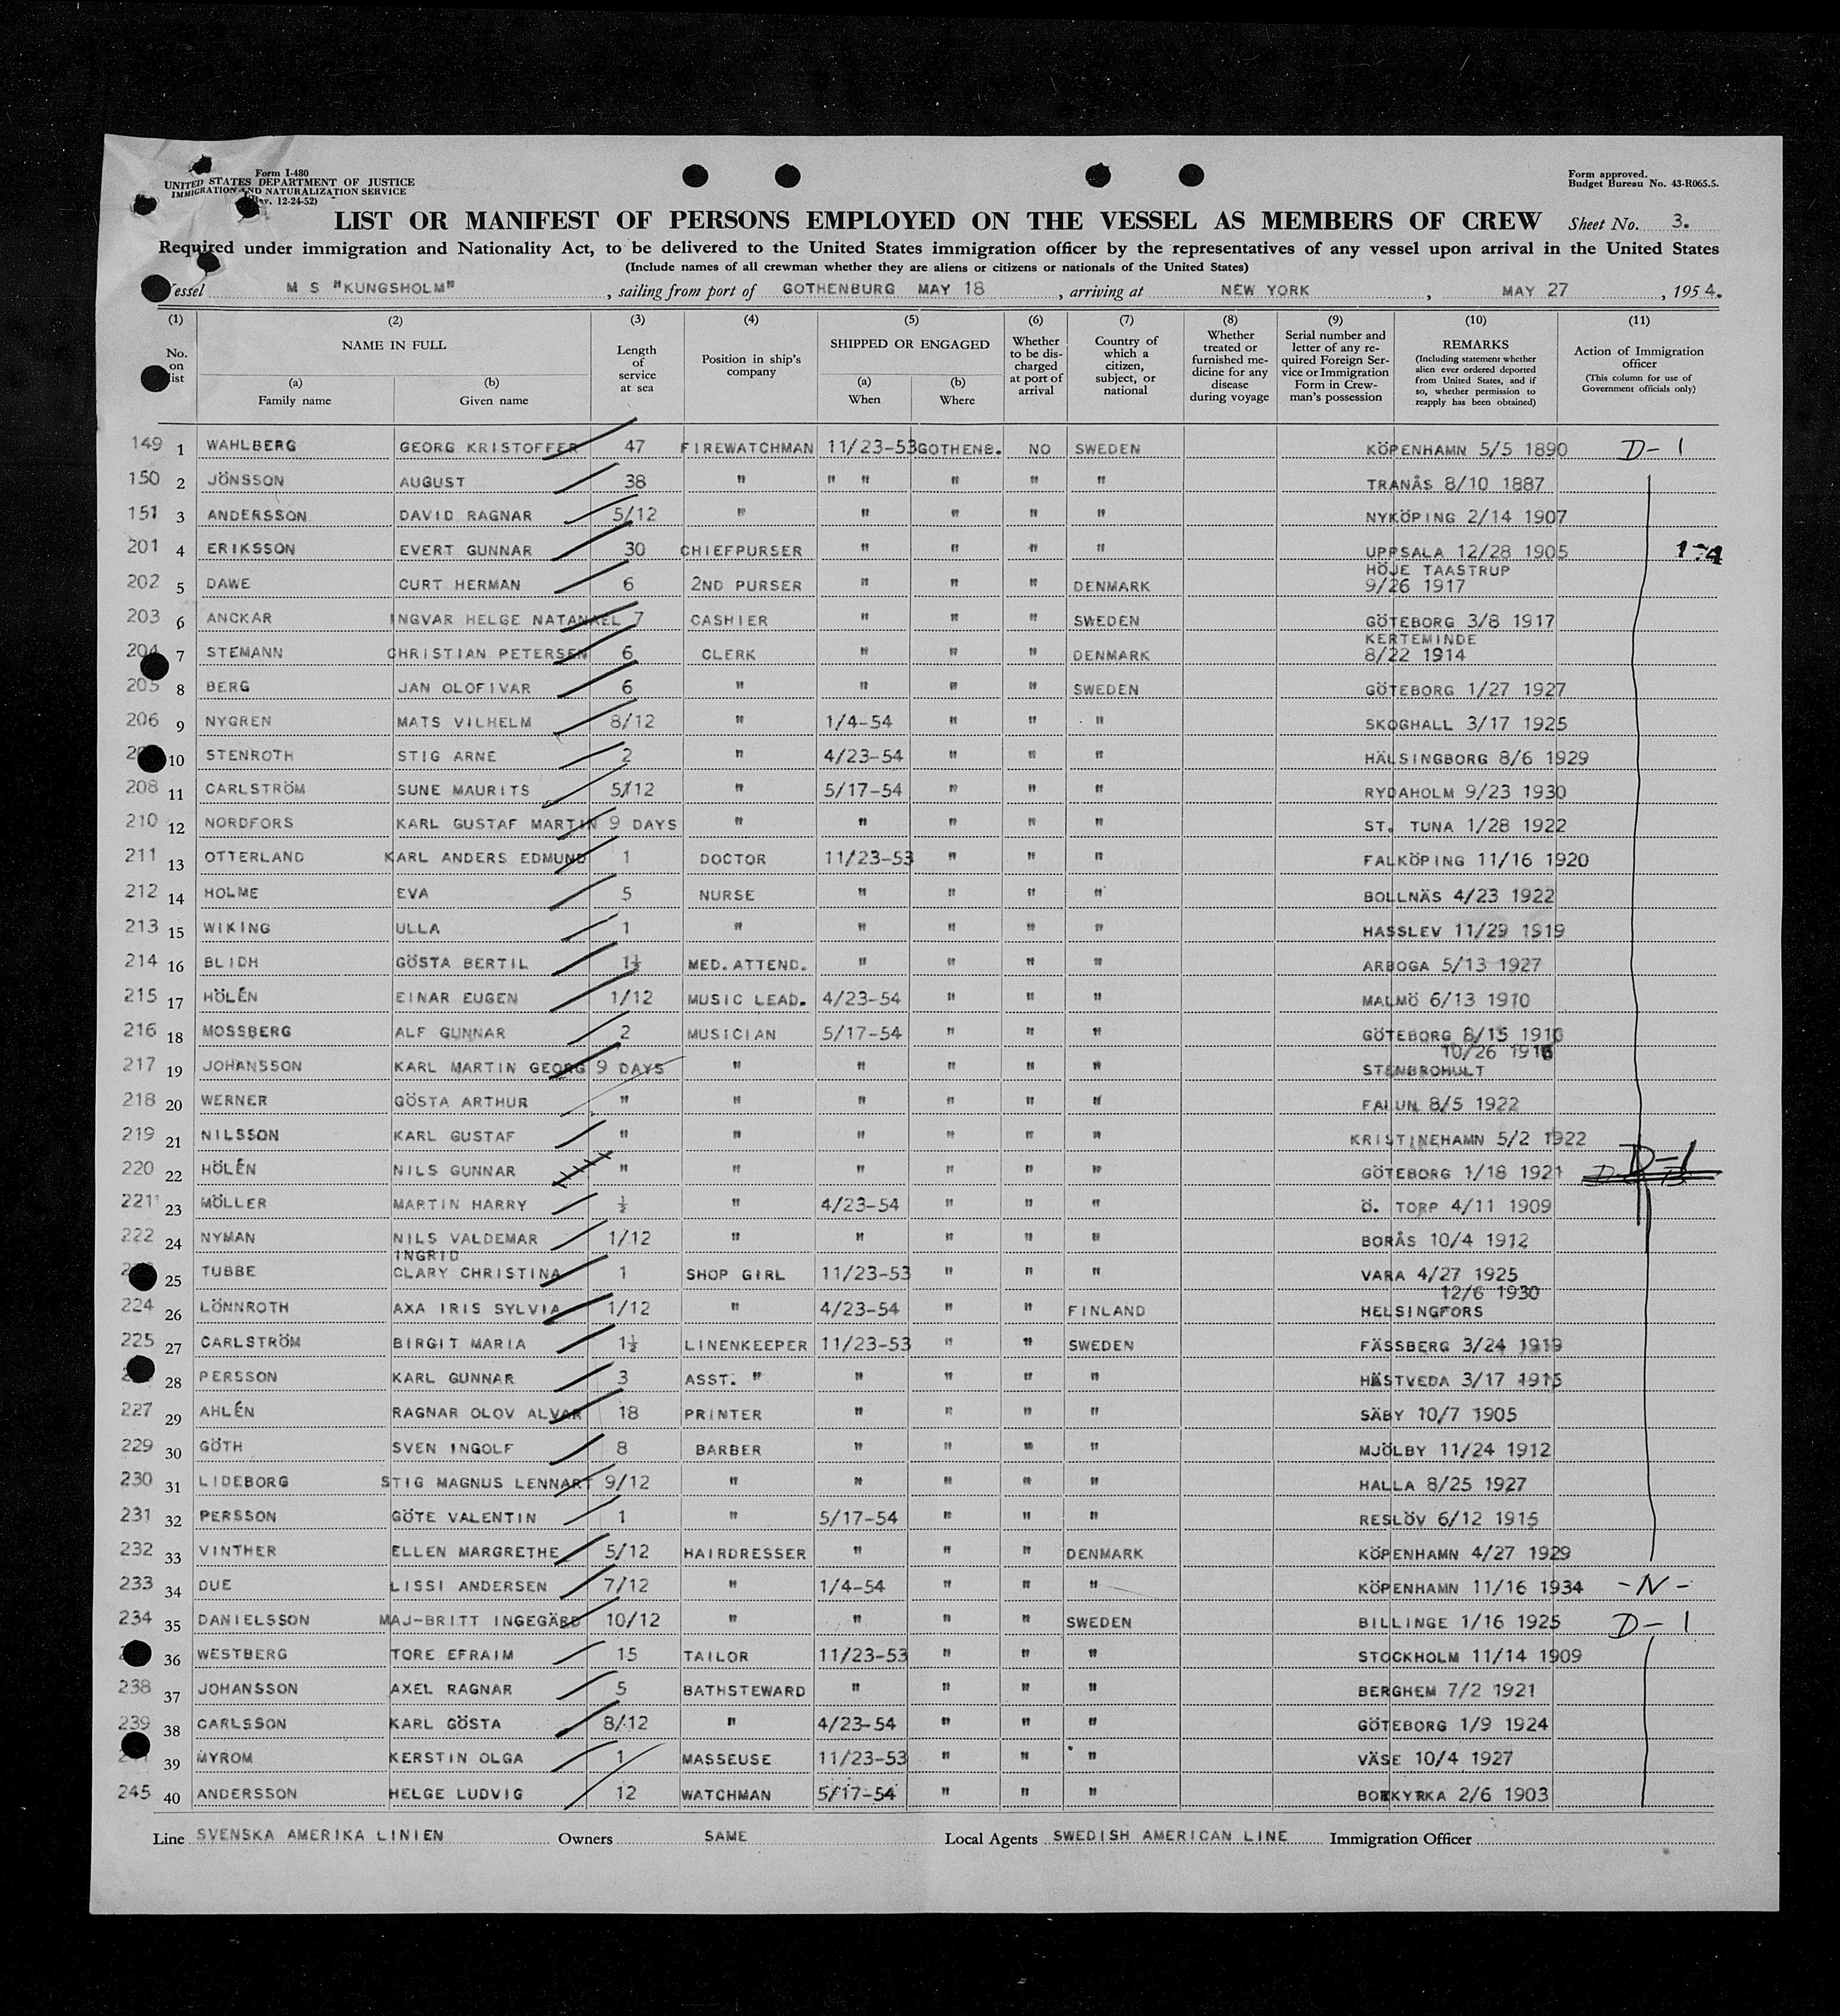 Form I-480
UNITED STATES DEPARTMENT OF JUSTICE
IMMIGRATION AND NATURALIZATION SERVICE
(Rev. 12-24-52)
Form approved.
Budget Bureau No. 43-R065.5.
LIST OR MANIFEST OF PERSONS EMPLOYED ON THE VESSEL AS MEMBERS OF CREW Sheet No. 3.
Required under immigration and Nationality Act, to be delivered to the United States immigration officer by the representatives of any vessel upon arrival in the United States
(Include names of all crewman whether they are aliens or citizens or nationals of the United States)
Vessel M S "KUNGSHOLM", sailing from port of GOTHENBURG MAY 18, arriving at NEW YORK, MAY 27, 1954.
(1) No. on list
(2) NAME IN FULL (a) Family name (b) Given name
(3) Length of service at sea
(4) Position in ship's company
(5) SHIPPED OR ENGAGED (a) When (b) Where
(6) Whether to be discharged at port of arrival
(7) Country of which a citizen, subject, or national
(8) Whether treated or furnished medicine for any disease during voyage
(9) Serial number and letter of any required Foreign Service or Immigration Form in Crewman's possession
(10) REMARKS (Including statement whether alien ever ordered deported from United States, and if so, whether permission to reapply has been obtained)
(11) Action of Immigration officer (This column for use of Government officials only)
149 1 WAHLBERG GEORG KRISTOFFER 47 FIREWATCHMAN 11/23-53 GOTHENB. NO SWEDEN KÖPENHAMN 5/5 1890 D-1
150 2 JÖNSSON AUGUST 38 " " " " " " TRANÅS 8/10 1887
151 3 ANDERSSON DAVID RAGNAR 5/12 " " " " " NYKÖPING 2/14 1907
201 4 ERIKSSON EVERT GUNNAR 30 CHIEFPURSER " " " " UPPSALA 12/28 1905
202 5 DAWE CURT HERMAN 6 2ND PURSER " " " DENMARK HÖJE TAASTRUP 9/26 1917
203 6 ANCKAR INGVAR HELGE NATANAEL 7 CASHIER " " " SWEDEN GÖTEBORG 3/8 1917
204 7 STEMANN CHRISTIAN PETERSEN 6 CLERK " " " DENMARK KERTEMINDE 8/22 1914
205 8 BERG JAN OLOF IVAR 6 " " " " SWEDEN GÖTEBORG 1/27 1927
206 9 NYGREN MATS VILHELM 8/12 " 1/4-54 " " " SKOGHALL 3/17 1925
10 STENROTH STIG ARNE 2 " 4/23-54 " " " HÄLSINGBORG 8/6 1929
208 11 CARLSTRÖM SUNE MAURITS 5/12 " 5/17-54 " " " RYDAHOLM 9/23 1930
210 12 NORDFORS KARL GUSTAF MARTIN 9 DAYS " " " " " ST. TUNA 1/28 1922
211 13 OTTERLAND KARL ANDERS EDMUND 1 DOCTOR 11/23-53 " " " FALKÖPING 11/16 1920
212 14 HOLME EVA 5 NURSE " " " " BOLLNÄS 4/23 1922
213 15 WIKING ULLA 1 " " " " " HASSLEV 11/29 1919
214 16 BLIDH GÖSTA BERTIL 1½ MED. ATTEND. " " " " ARBOGA 5/13 1927
215 17 HÖLÉN EINAR EUGEN 1/12 MUSIC LEAD. 4/23-54 " " " MALMÖ 6/13 1910
216 18 MOSSBERG ALF GUNNAR 2 MUSICIAN 5/17-54 " " " GÖTEBORG 8/15
217 19 JOHANSSON KARL MARTIN GEORG 9 DAYS " " " " " 10/26 STENBROHULT
218 20 WERNER GÖSTA ARTHUR " " " " " " FALUN 8/5 1922
219 21 NILSSON KARL GUSTAF " " " " " " KRISTINEHAMN 5/2 1922
220 22 HÖLÉN NILS GUNNAR " " " " " " GÖTEBORG 1/18 1921 D-1
221 23 MÖLLER MARTIN HARRY ½ " 4/23-54 " " " Ö. TORP 4/11 1909
222 24 NYMAN NILS VALDEMAR 1/12 " " " " " BORÅS 10/4 1912
25 TUBBE INGRID CLARY CHRISTINA 1 SHOP GIRL 11/23-53 " " " VARA 4/27 1925
224 26 LÖNNROTH AXA IRIS SYLVIA 1/12 " 4/23-54 " " FINLAND 12/6 1930 HELSINGFORS
225 27 CARLSTRÖM BIRGIT MARIA 1½ LINENKEEPER 11/23-53 " " SWEDEN FÄSSBERG 3/24 1919
28 PERSSON KARL GUNNAR 3 ASST. " " " " " HÄSTVEDA 3/17 1915
227 29 AHLÉN RAGNAR OLOV ALVAR 18 PRINTER " " " " SÄBY 10/7 1905
229 30 GÖTH SVEN INGOLF 8 BARBER " " " " MJÖLBY 11/24 1912
230 31 LIDEBORG STIG MAGNUS LENNART 9/12 " " " " " HALLA 8/25 1927
231 32 PERSSON GÖTE VALENTIN 1 " 5/17-54 " " " RESLÖV 6/12 1915
232 33 VINTHER ELLEN MARGRETHE 5/12 HAIRDRESSER " " " DENMARK KÖPENHAMN 4/27 1929
233 34 DUE LISSI ANDERSEN 7/12 " 1/4-54 " " " KÖPENHAMN 11/16 1934 -N-
234 35 DANIELSSON MAJ-BRITT INGEGÄRD 10/12 " " " " SWEDEN BILLINGE 1/16 1925 D-1
36 WESTBERG TORE EFRAIM 15 TAILOR 11/23-53 " " " STOCKHOLM 11/14 1909
238 37 JOHANSSON AXEL RAGNAR 5 BATHSTEWARD " " " " BERGHEM 7/2 1921
239 38 CARLSSON KARL GÖSTA 8/12 " 4/23-54 " " " GÖTEBORG 1/9 1924
39 MYROM KERSTIN OLGA 1 MASSEUSE 11/23-53 " " " VÄSE 10/4 1927
245 40 ANDERSSON HELGE LUDVIG 12 WATCHMAN 5/17-54 " " " BOTKYRKA 2/6 1903
Line SVENSKA AMERIKA LINIEN Owners SAME Local Agents SWEDISH AMERICAN LINE Immigration Officer